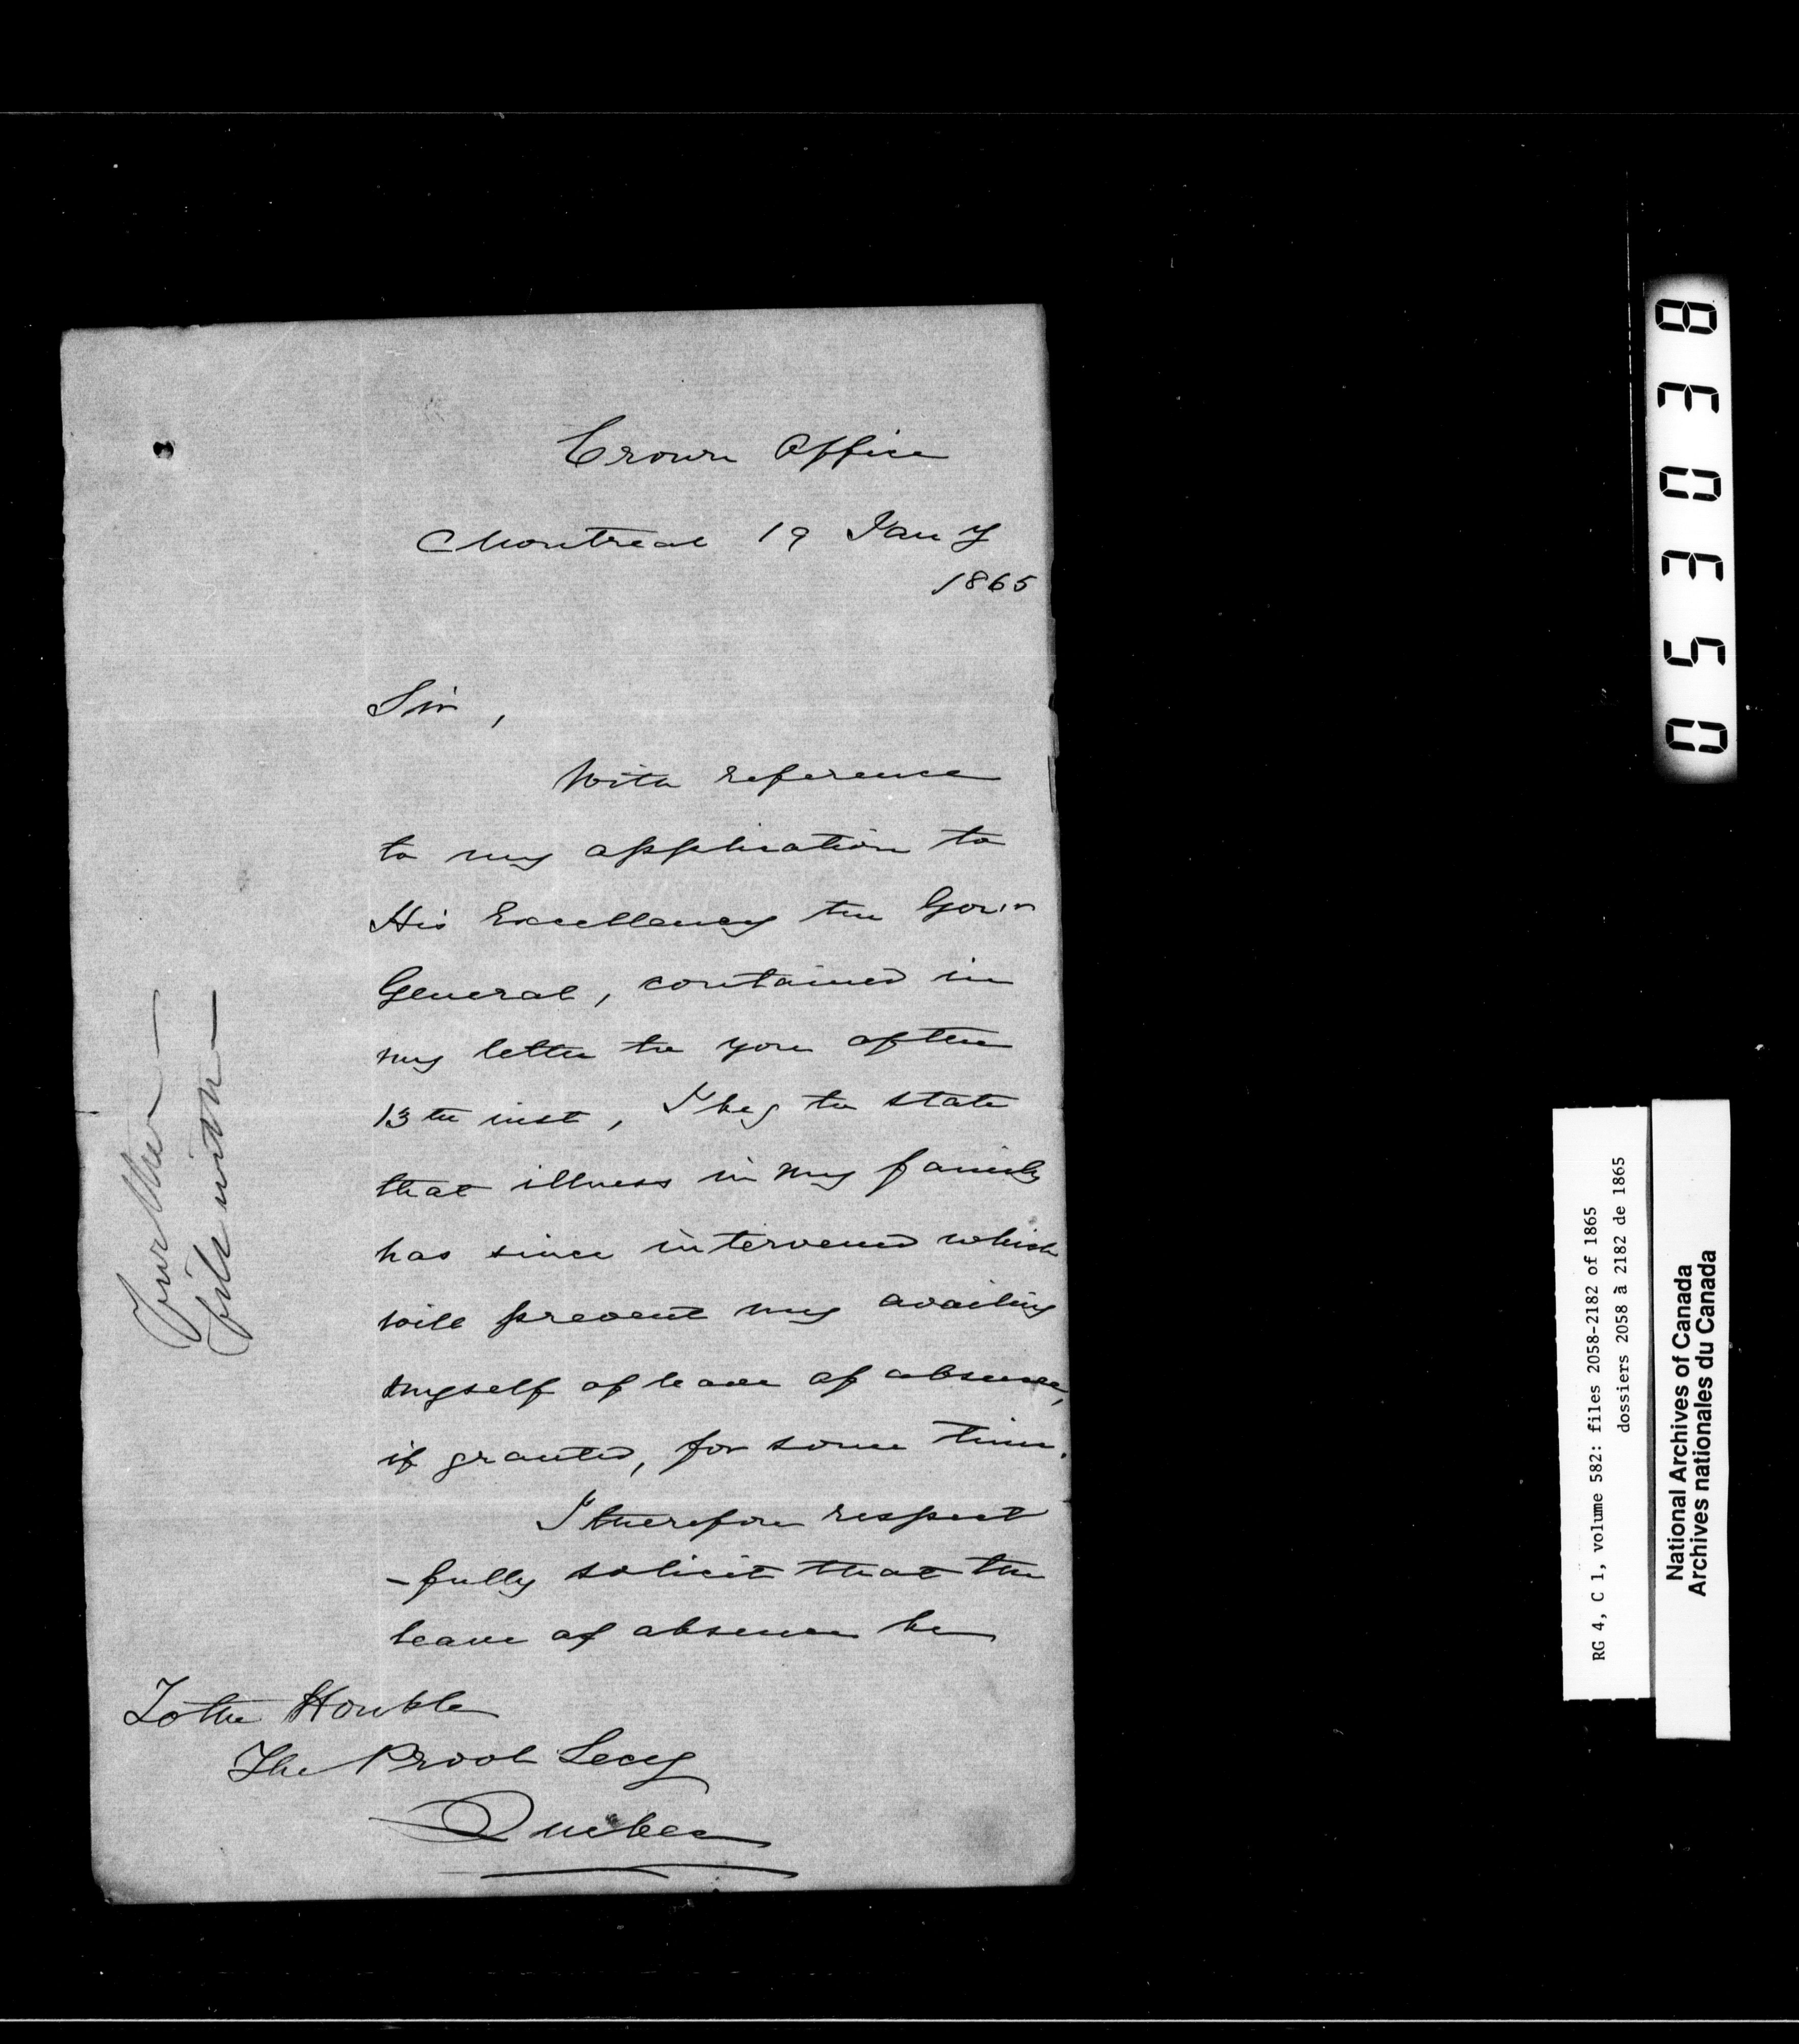 Crown Office
Montreal 19 Jany
1865
Sir,
With reference
to my application to
His Excellency the Gov'r
General, contained in
my letter to you of the
13th inst, I beg to state
that illness in my family
has since intervened which
will prevent my availing
myself of leave of absence,
if granted, for some time.
I therefore respect
-fully solicit that the
leave of absence be
To the Honble
The Provl Secy
Quebec
further
053038
RG 4, C 1, volume 582: files 2058-2182 of 1865
dossiers 2058 à 2182 de 1865
National Archives of Canada
Archives nationales du Canada